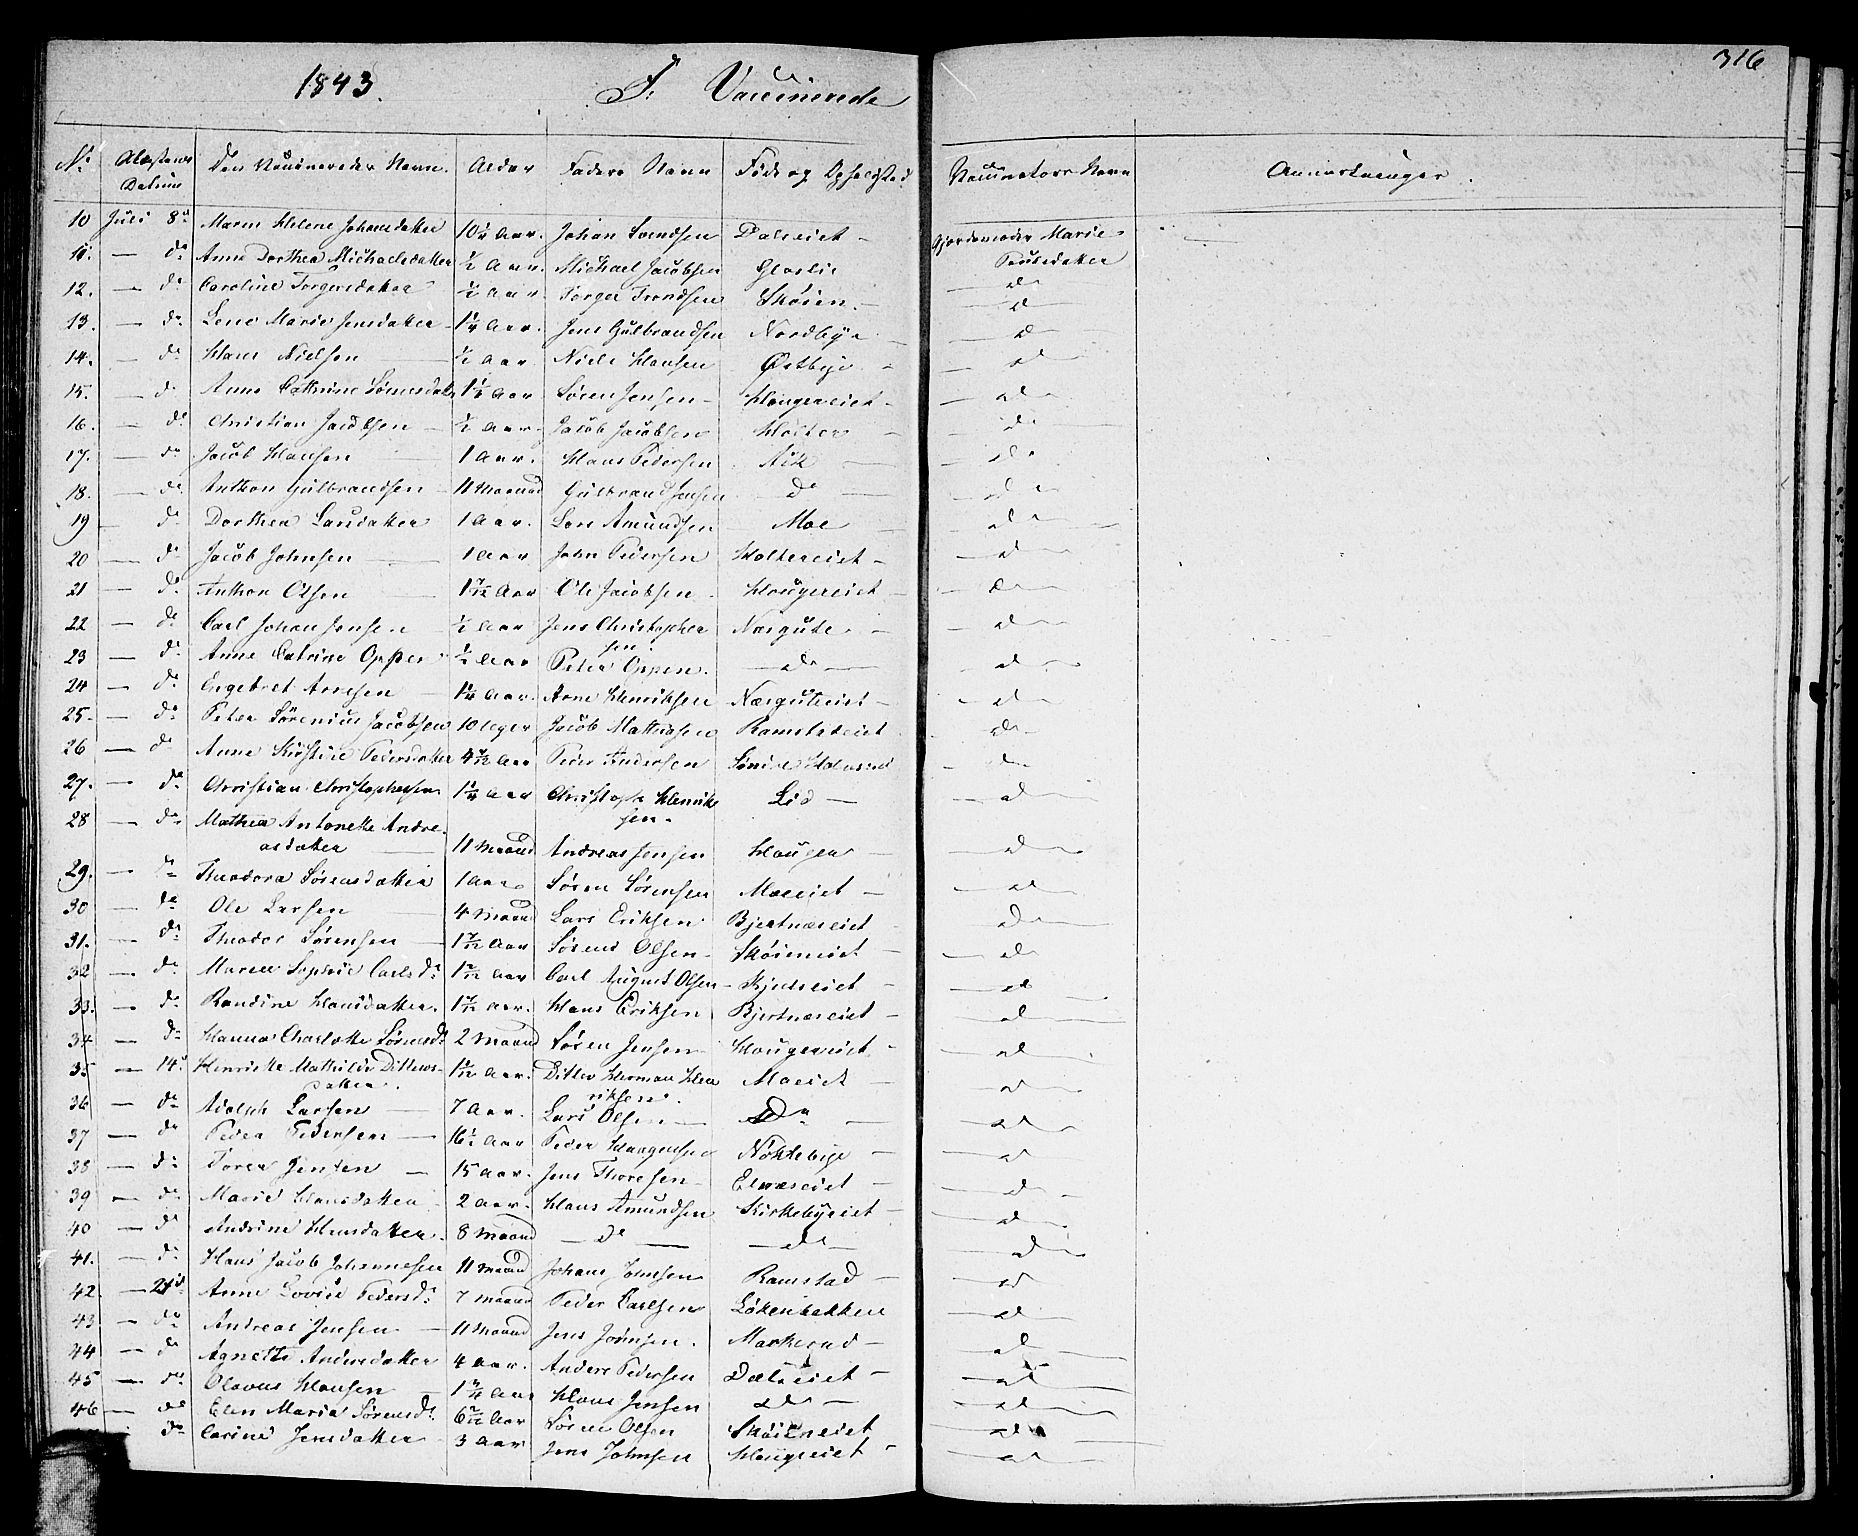 1843. F: Vaccinerede 316
No Attestens Datum Den Vaccineredes Navn. Alder Faders Navn Føde og Opholdsted Vaccinators Navn Anmærkninger.
10 Juli 8de Maren Helene Johansdatter 10 1/4 Aar. Johan Svendsen Daleiet - Gjordemoder Marie
11. — do Anne Dorthea Michaelsdatter 1/2 Aar. Michael Jacobsen Gloslie Poulsdatter
12. — do Caroline Torgersdatter 1/2 Aar Torger Trondsen Skøien — do
13. — do Lene Marie Jensdatter 1 1/4 Aar. Jens Gulbrandsen Nordbye — d
14. — do Hans Nielsen 1/2 Aar Niels Hansen Østbye — d
15. — do Anne Cathrine Sørensdatter 1 1/2 Aar Søren Jensen Haugereiet — d
16. — do Christian Jacobsen 1/2 Aar. Jacob Jacobsen Holter — do
17. — do Jacob Hansen 1 Aar. Hans Pedersen — do
18. — do Anthon Gulbrandsen 11 Maaned Gulbrand Jensen do — do
19 — do Dorthea Larsdatter 1 Aar. Lars Amundsen Moe — do
20 — do Jacob Johnsen 1 Aar John Pedersen Holtereiet — do
21 — do Anthon Olsen 1 7/12 Aar Ole Jacobsen Haugereiet — do
22 — do Carl Johan Jensen 1/2 Aar Jens Christopher Næsgute — do
sen.
23 — do Anne Catrine Oppen 1/2 Aar Peter Oppen. — do — — do
24 — do Engebret Arnesen 1 1/4 Aar. Arne Henriksen Næsguteiet — do
25. — do Peter Sørenius Jacobsen 10 Uger Jacob Mathisen Ramstadeiet — do
26 — do Anne Kirstine Pedersdatter 4 7/12 Aar Peder Andersen Søndre — do
27. — do Christian Christophersen 1 1/4 Aar Christoph Henrik Lid — — do
sen.
28 — do Mathea Antonette Andre-
asdatter 11 Maaned Andreas Jensen Haugen — do
29. — do Theodora Sørensdatter 1 Aar Søren Sørensen Moeeiet — do
30 — do Ole Larsen 4 Maaned Lars Eriksen Bjertnæseiet — do
31. — do Theodor Sørensen 1 7/12 Aar Sørend Olsen Skøieneiet — do
32 — do Maren Sophie Carlsdr 1 7/12 Aar Carl August Olsen Kjuleiet — do
33. — do Randine Hansdatter. 1 7/12 Aar. Hans Eriksen Bjertnæseiet — do
34 — do Hanna Charlotte Sørensdr 2 Maaned Søren Jensen Haugereiet — do
35 — 14de Henriette Mathilde Ditlevs- 1 5/12 Aar. Ditlev Herman Hen Moeeiet — do
datter. riksen.
36 — do Adolph Larsen 7 Aar. Lars Olsen do — do
37 — do Peder Pedersen 16 1/2 Aar Peder Nøklebye — do
38 — do Torer Jensen 15 Aar. Jens Thoresen Elvæseiet — do
39 — do Marie Hansdatter 2 Aar. Hans Amundsen Kirkebyeiet — do
40 — do Andrine Hansdatter 8 Maaned — do — — do — — do
41. — do Hans Jacob Johannesen 11 Maaned Johans Johnsen Ramstad — do
42. — 21de Anne Lovise Pedersdr 7 Maaned Peder Carlsen Løkenbakken — do
43. — do Andreas Jensen 11 Maaned Jens Jørnsen. Markerud — do
44 — do Agnette Andersdatter 4 Aar. Anders Pedersen Daleeiet — do
45 — do Olavus Hansen 1 3/4 Aar Hans Jensen do — do
46 — do Elen Maria Sørensdr 6 7/12 Aar Søren Olsen Skøieneiet — do
do Carine Jensdatter 3 Aar Jens Johnsen Haugereiet — do